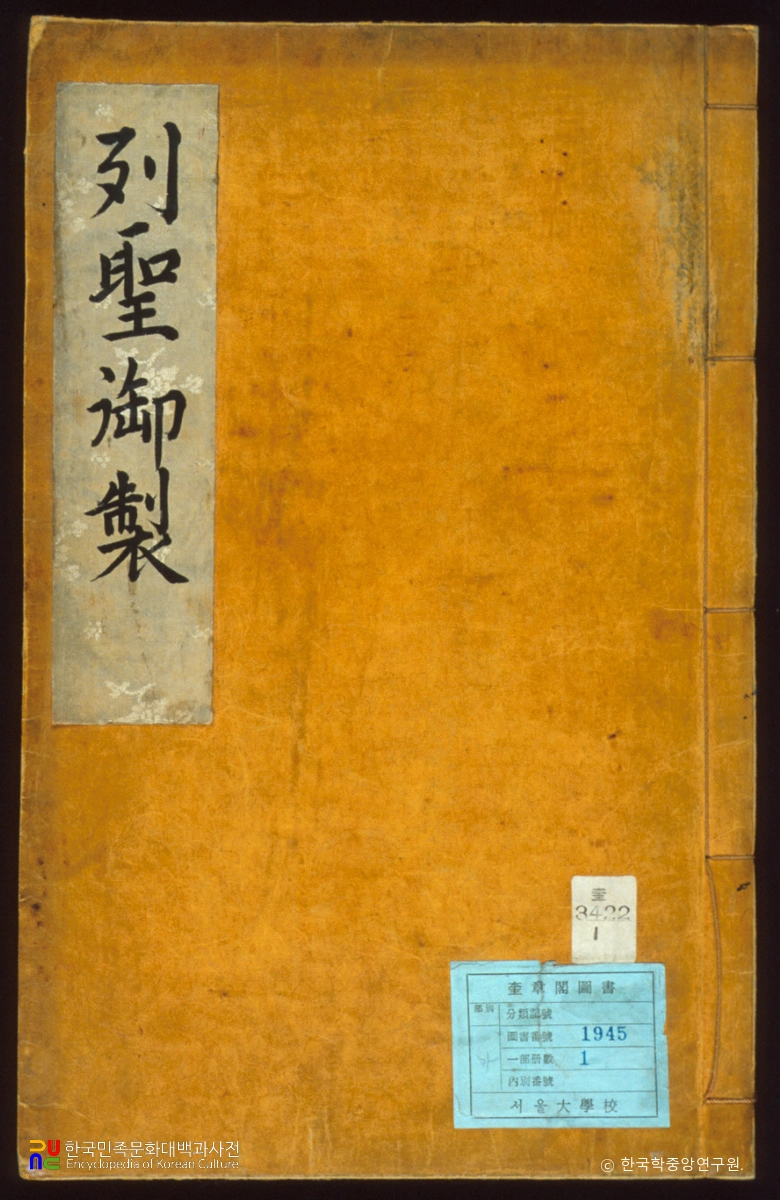 列聖御製
奎
3422
1
奎章閣圖書
部別
分類記號
圖書番號 1945
一部册數 1
內別番號
서울大學校
한국민족문화대백과사전
Encyclopedia of Korean Culture
© 한국학중앙연구원.